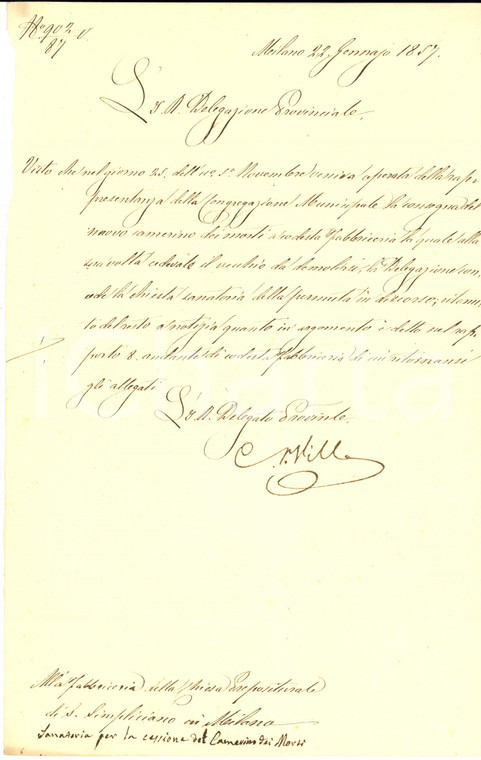 N° 902 V.
87
Milano 22 Gennajo 1857.
L'I. R. Delegazione Provinciale.
Visto che nel giorno 25. dell'or. s.° Novembre veniva operata dalla rap-
presentanza della Congregazione Municipale la consegna del
nuovo camerino dei morti a codesta Fabbriceria la quale alla
sua volta cedevale il vecchio da demolirsi, la Delegazione con-
cede la chiesta sanatoria della permuta in discorso, ritenu-
to del resto a notizia quanto in argomento è detto nel rap-
porto 8. andante di codesta Fabbriceria di cui ritornansi
gli allegati.
L'I. R. Delegato Provinciale.
Villa
Alla Fabbriceria della Chiesa Prepositurale
di S. Simpliciano in Milano
Sanatoria per la cessione del Camerino dei Morti
iCharta